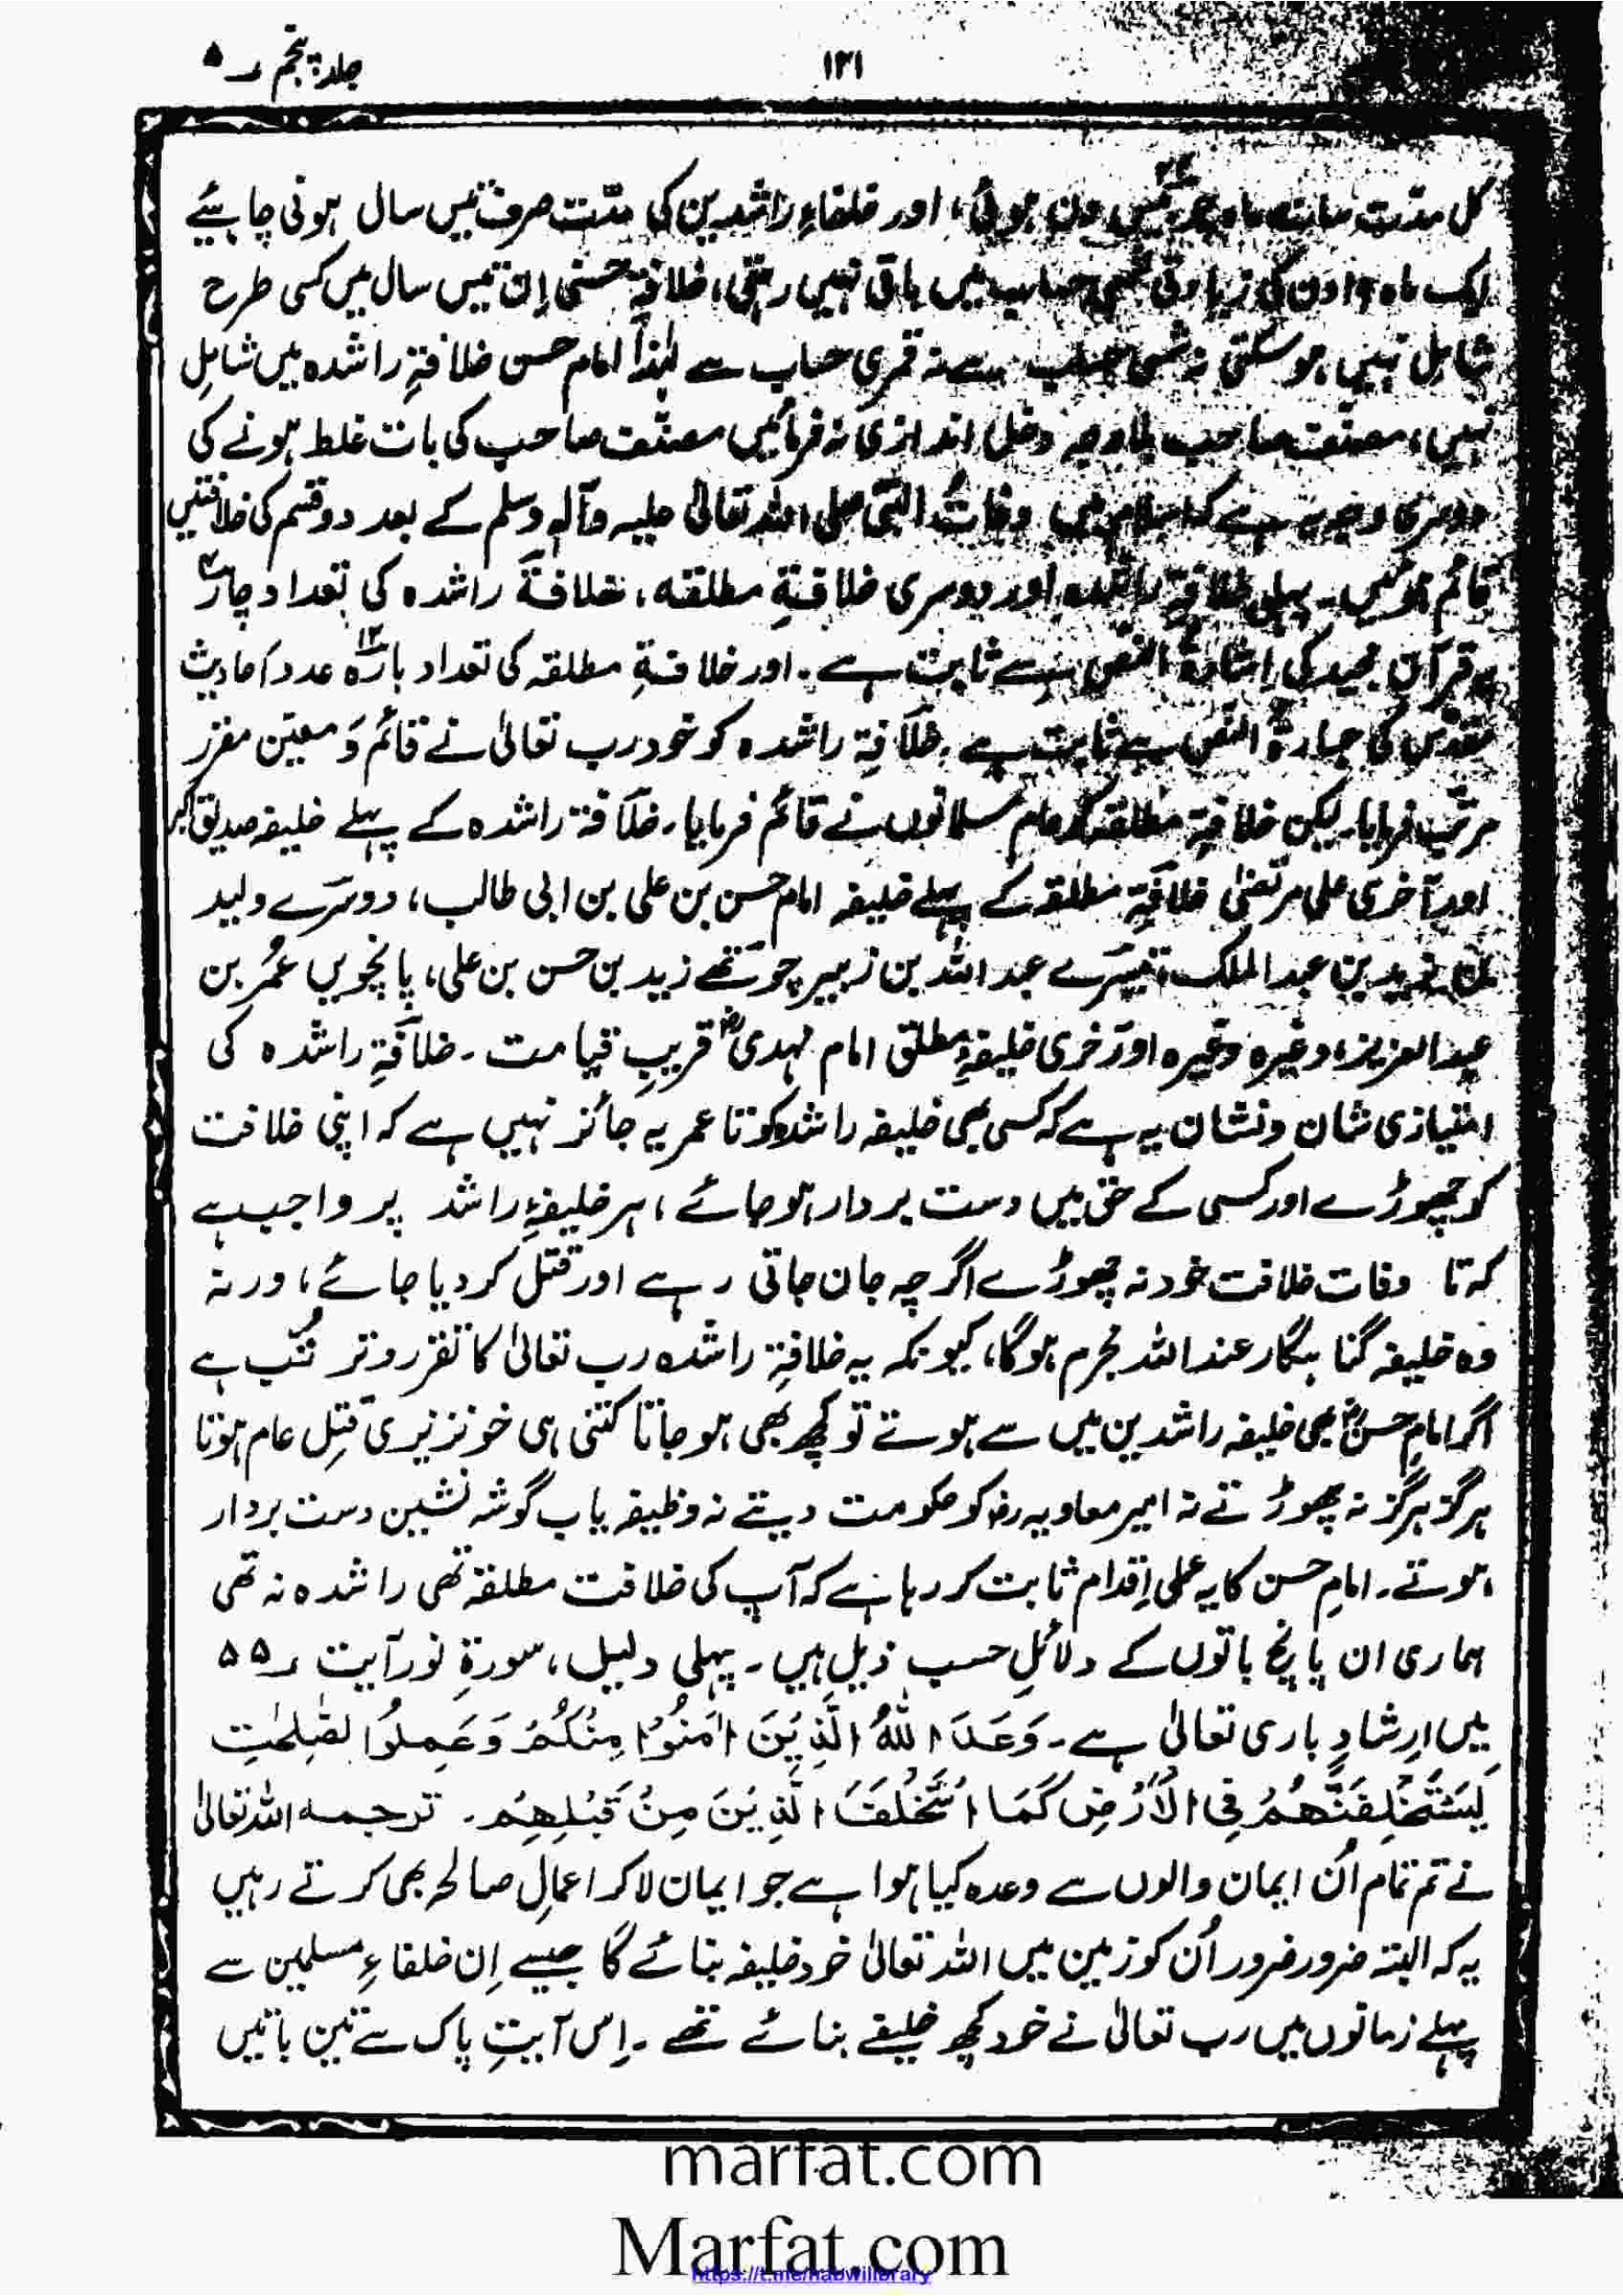 جلد پنجم ۵
۱۳۱
کل مدت سات ماہ دن ہوئی، اور خلفاءِ راشدین کی مدّت صرف تیس سال ہونی چاہئیے
ایک ماہ دن کی زیادتی حساب میں باقی نہیں رہتی، خلافۃِ حسنی اِن تیس سال میں کسی طرح
شامِل نہیں ہو سکتی نہ شمسی حساب سے نہ قمری حساب سے لہٰذا امام حسن خلافۃِ راشدہ میں شامِل
نہیں، مصنّف صاحب بلاوجہ دخل اندازی نہ فرمائیں مصنّف صاحب کی بات غلط ہونے کی
دوسری وجہ یہ ہے کہ اسلام میں وفاتُ النبی صلی اللہ تعالیٰ علیہ وآلہٖ وسلم کے بعد دو قسم کی خلافتیں
قائم ہوئیں۔ پہلی خلافۃِ راشدہ اور دوسری خلافۃِ مطلقہ، خلافۃ راشدہ کی تعداد چار۴
قرآن مجید کی اِشارۃُ النص سے ثابت ہے۔ اور خلافۃِ مطلقہ کی تعداد بارہ۱۲ عدد احادیث
مقدس کی عبارۃُ النص سے ثابت ہے۔ خلافۃِ راشدہ کو خود رب تعالیٰ نے قائم وَ معیّن مقرر
مرتّب فرمایا۔ لیکن خلافۃِ مطلقہ کو عام مسلمانوں نے قائم فرمایا۔ خلافۃ راشدہ کے پہلے خلیفہ صدیق اکبر
اور آخری علی مرتضیٰ خلافۃِ مطلقہ کے پہلے خلیفہ امام حسن بن علی بن ابی طالب، دوسرے ولید
بن یزید بن عبد الملک، تیسرے عبد اللہ بن زبیر چوتھے زید بن حسن بن علی، پانچویں عُمر بن
عبد العزیز، وغیرہ وغیرہ اور آخری خلیفۂِ مطلق امام مہدیؓ قریبِ قیامت۔ خلافۃِ راشدہ کی
امتیازی شان و نشان یہ ہے کہ کسی بھی خلیفہ راشدہ کو تا عمر یہ جائز نہیں ہے کہ اپنی خلافت
کو چھوڑے اور کسی کے حق میں دست بردار ہو جائے، ہر خلیفۂِ راشد پر واجب ہے
کہ تا وفات خلافت خود نہ چھوڑے اگرچہ جان جاتی رہے اور قتل کر دیا جائے، ورنہ
وہ خلیفہ گناہگار عند اللہ مجرم ہوگا، کیونکہ یہ خلافۃِ راشدہ رب تعالیٰ کا تقرر و ترتُّب ہے
اگر امامِ حسنؓ بھی خلیفہ راشدین میں سے ہوتے تو کچھ بھی ہو جاتا کتنی ہی خونریزی قتلِ عام ہوتا
ہرگز ہرگز نہ چھوڑتے نہ امیر معاویہ رضہ کو حکومت دیتے نہ وظیفہ یاب گوشہ نشین دست بردار
ہوتے۔ امامِ حسن کا یہ عملی اِقدام ثابت کر رہا ہے کہ آپ کی خلافت مطلقہ تھی راشدہ نہ تھی
ہماری ان پانچ باتوں کے دلائلِ حسب ذیل ہیں۔ پہلی دلیل، سورۃِ نور آیت ۵۵
میں ارشادِ باری تعالیٰ ہے۔ وَعَدَ اللّٰهُ الَّذِيْنَ اٰمَنُوْا مِنْكُمْ وَعَمِلُوا لصّٰلِحٰتِ
لَيَسْتَخْلِفَنَّهُمْ فِي الْاَرْضِ كَمَا اسْتَخْلَفَ الَّذِيْنَ مِنْ قَبْلِهِمْ۔ ترجمہ اللہ تعالیٰ
نے تم تمام اُن ایمان والوں سے وعدہ کیا ہوا ہے جو ایمان لا کر اعمالِ صالحہ بھی کرتے رہیں
یہ کہ البتہ ضرور ضرور اُن کو زمین میں اللہ تعالیٰ خود خلیفہ بنائے گا جیسے اِن خلفاءِ مسلمین سے
پہلے زمانوں میں رب تعالیٰ نے خود کچھ خلیفے بنائے تھے۔ اِس آیتِ پاک سے تین باتیں
marfat.com
Marfat.com
https://t.me/nabwilibrary